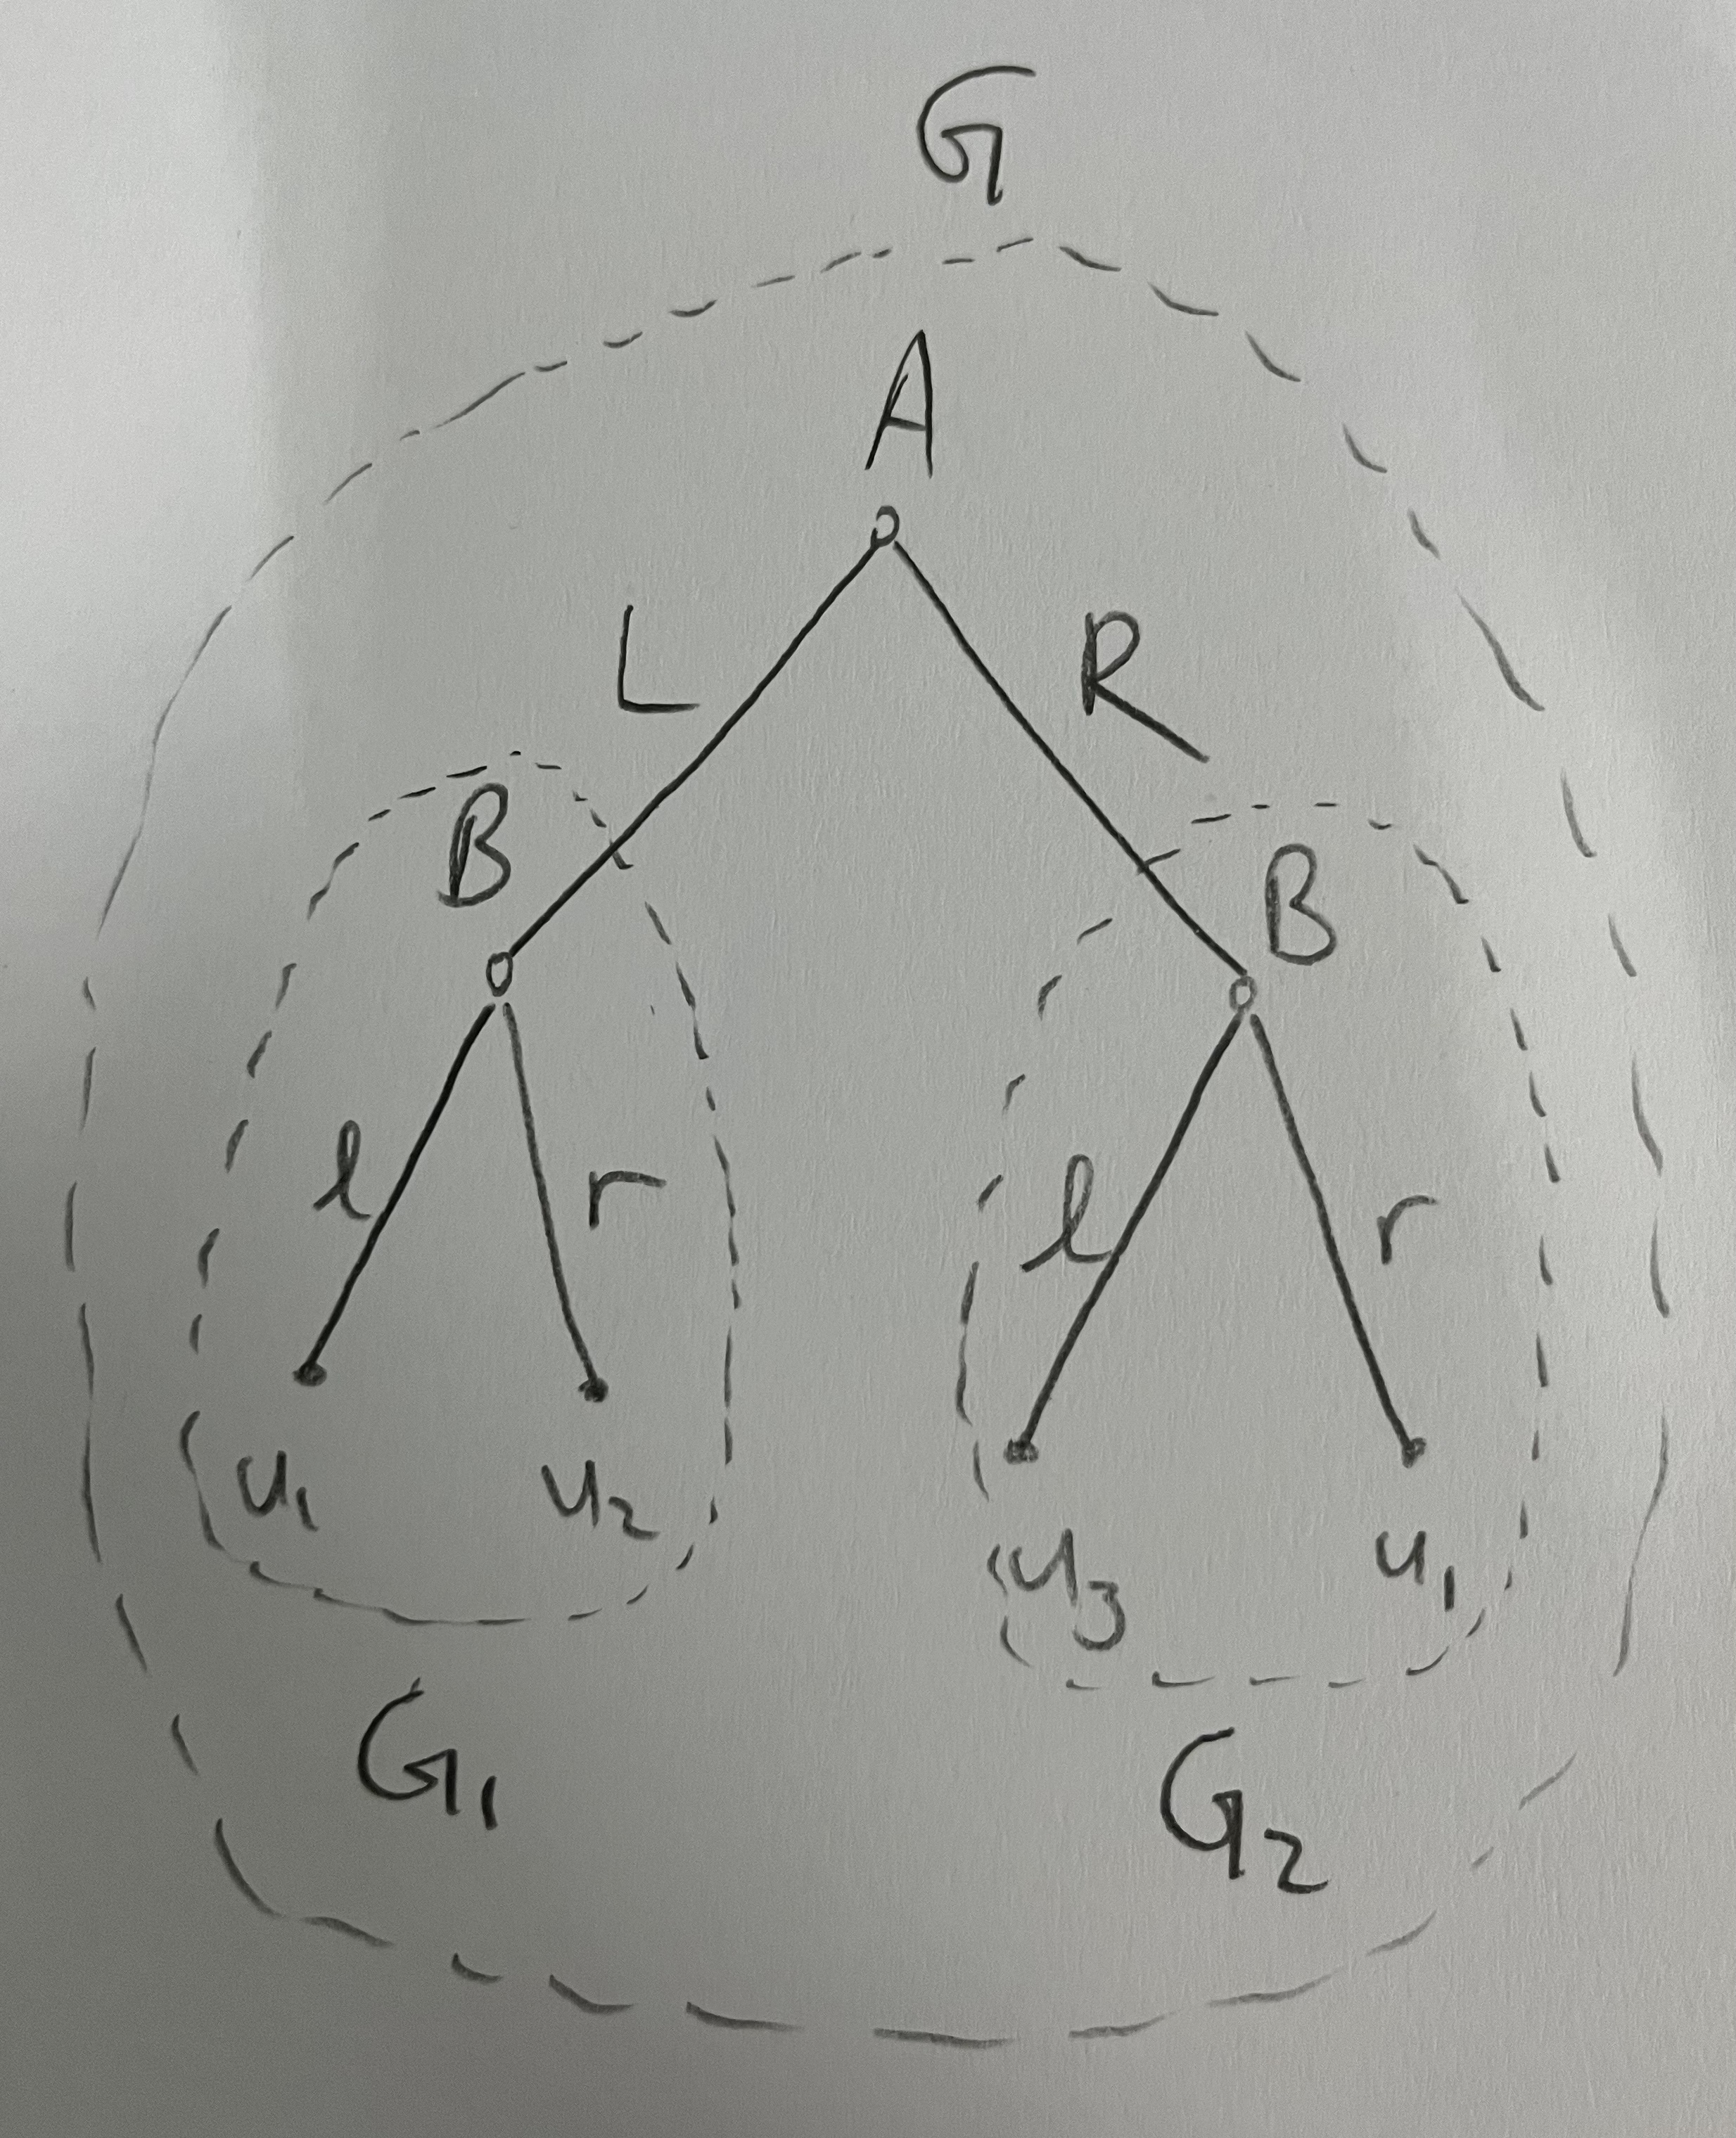 G
A
L R
B B
l r l r
u₁ u₂ u₃ u₁
G₁ G₂